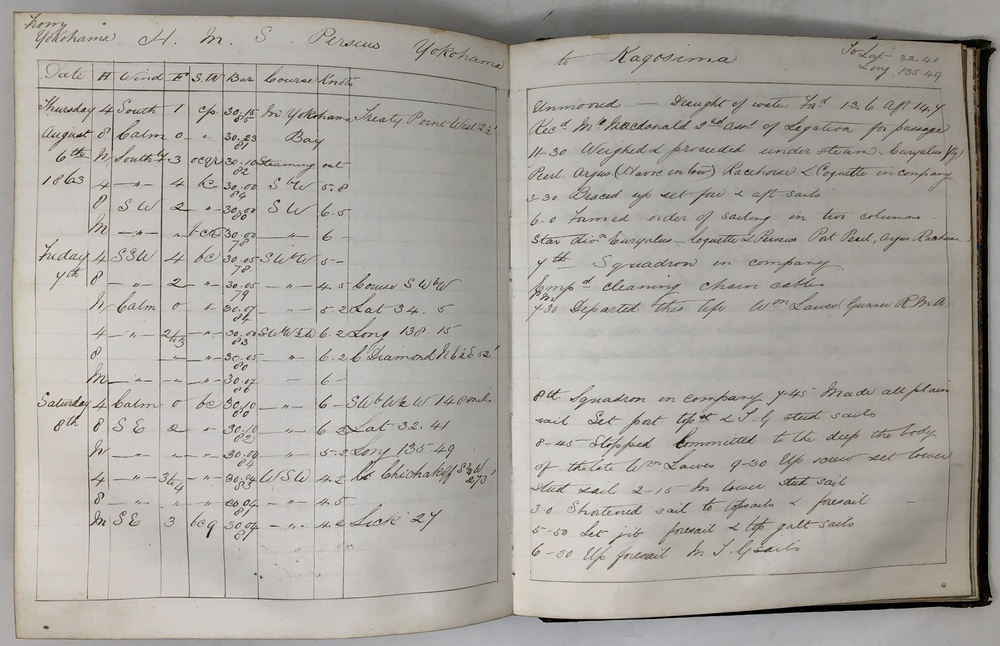 From
Yokohama H. M. S. Perseus Yokohama
Date H Wind F S.W Bar Course Knots
Thursday 4 South 1 cp 30.15 In Yokohama Treaty Point West 2½'
85
August 8 Calm 0 " 30.23 Bay
6th N South 3 ocqr 30.10 Steaming out
82
1863 4 " 4 bc 30.00 SbW 5.8
84
8 SW 2 " 30.00 SW 6.5
80
M " " bcr 30.00 " 6
78
Friday 4 SSW 4 bc 30.05 SWbW 5
78
7th 8 " 2 " 30.05 " 4.5 Course SWbW
79
N Calm 0 " 30.07 " 5.2 Lat 34.5
84
4 " " 30.00 6.2 Long 138.15
83
8 " " 30.05 " 6.2 C Diamond
80
M " " " 30.07 " 6
80
Saturday 4 Calm 0 bc 30.10 " 6 SWbW½W 148 miles
80
8th 8 SE 2 " 30.10 " 6.2 Lat 32.41
82
N " " 30.09 " 5.2 Long 135-49
84
4 " 3 to 4 " 30.04 WSW 4.2 Co Chichakoff S¾W
83 273'
8 " " " " 4.5
81
M SE 3 bcq 30.04 " 4.2 Sick 27
81
to Kagosima To Lat 32.41
Long 135.49
Unmoored. — Draught of water For'd 13.6 Aft 14.7
Recd Mr Macdonald 2nd asst of Legation for passage
11-30 Weighed & proceeded under steam. Euryalus (flag)
Pearl. Argus (Havoc in tow) Racehorse & Coquette in company
3-30 Braced up set fore & aft sails
6-0 Formed order of sailing in two columns
Star divn Euryalus — Coquette & Perseus Port Pearl, Argus Racehorse
7th Squadron in company
Empd cleaning chain cables
PM
7-30 Departed this life Wm Lawes Gunner R M A
8th Squadron in company 7-45 Made all plain
sail Set port topst & T.G stud sails
8-45 Stopped committed to the deep the body
of the late Wm Lawes 9-30 Up screw set lower
stud sail 2-15 In lower stud sail
3 0 Shortened sail to topsails & foresail
5-50 Set jib foresail & top galt sails
6-30 Up foresail In T.G sails